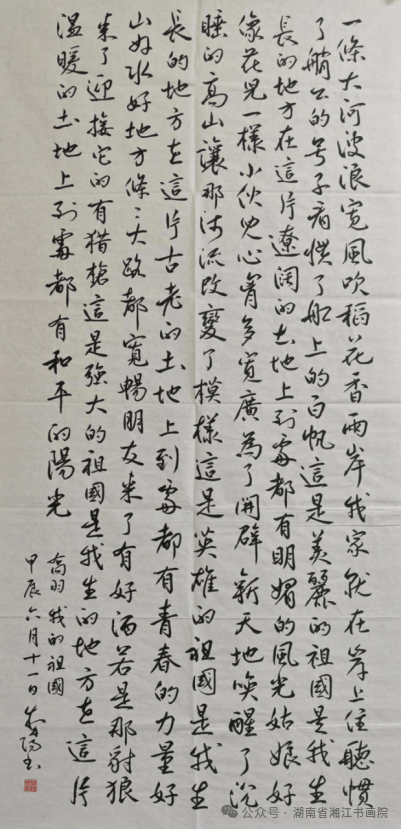 一條大河波浪寬風吹稻花香兩岸我家就在岸上住聽慣
了艄公的号子看慣了船上的白帆這是美麗的祖國是我生
長的地方在這片遼闊的土地上到處都有明媚的風光姑娘好
像花兒一樣小伙兒心胷多寬廣為了開辟新天地喚醒了沉
睡的高山讓那河流改變了模樣這是英雄的祖國是我生
長的地方在這片古老的土地上到處都有青春的力量好
山好水好地方條〻大路都寬暢朋友来了有好酒若是那豺狼
来了迎接它的有猎槍這是強大的祖國是我生的地方在這片
温暖的土地上到處都有和平的陽光
喬羽我的祖國
甲辰六月十一日
公众号 · 湖南省湘江书画院